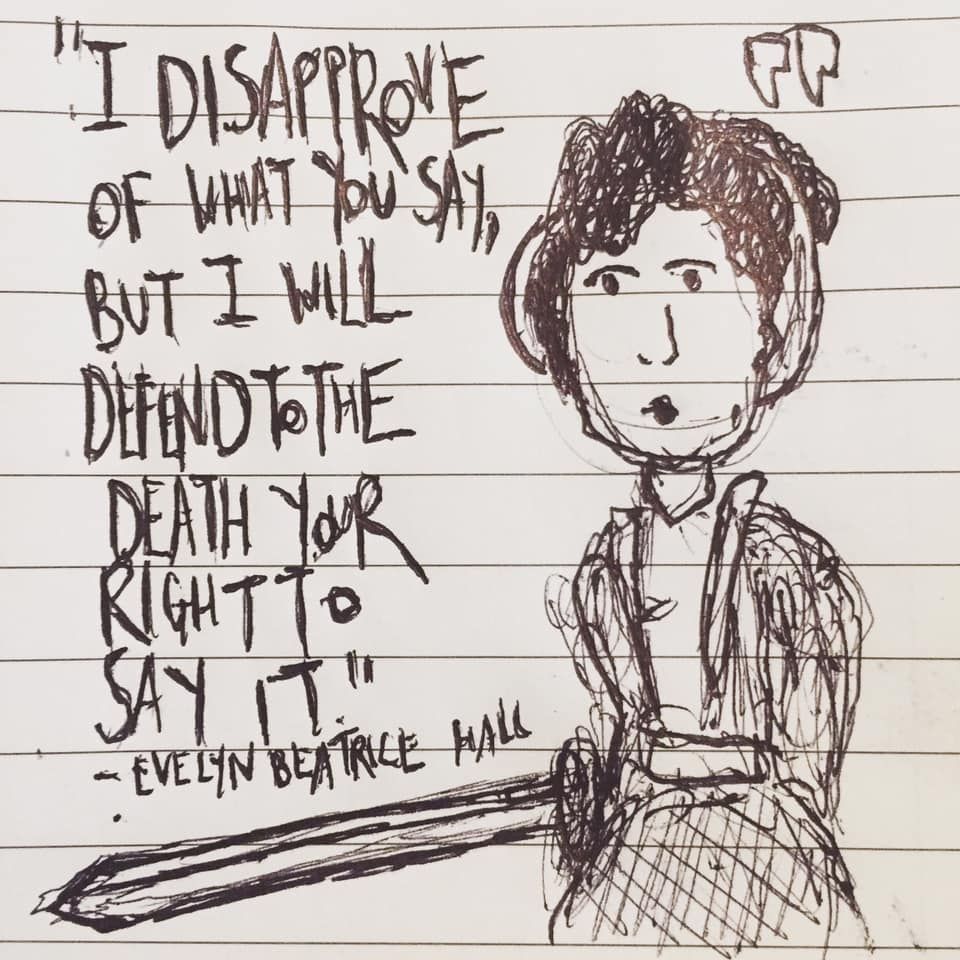 "I DISAPPROVE
OF WHAT YOU SAY,
BUT I WILL
DEFEND TO THE
DEATH YOUR
RIGHT TO
SAY IT."
- EVELYN BEATRICE HALL